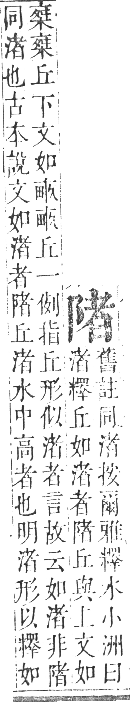 陼
舊註同渚按爾雅釋水小洲曰
渚釋丘如渚者陼丘與上文如
椉椉丘下文如畝畝丘一例指丘形似渚者言故云如渚非陼
同渚也古本說文如渚者陼丘渚水中高者也明渚形以釋如